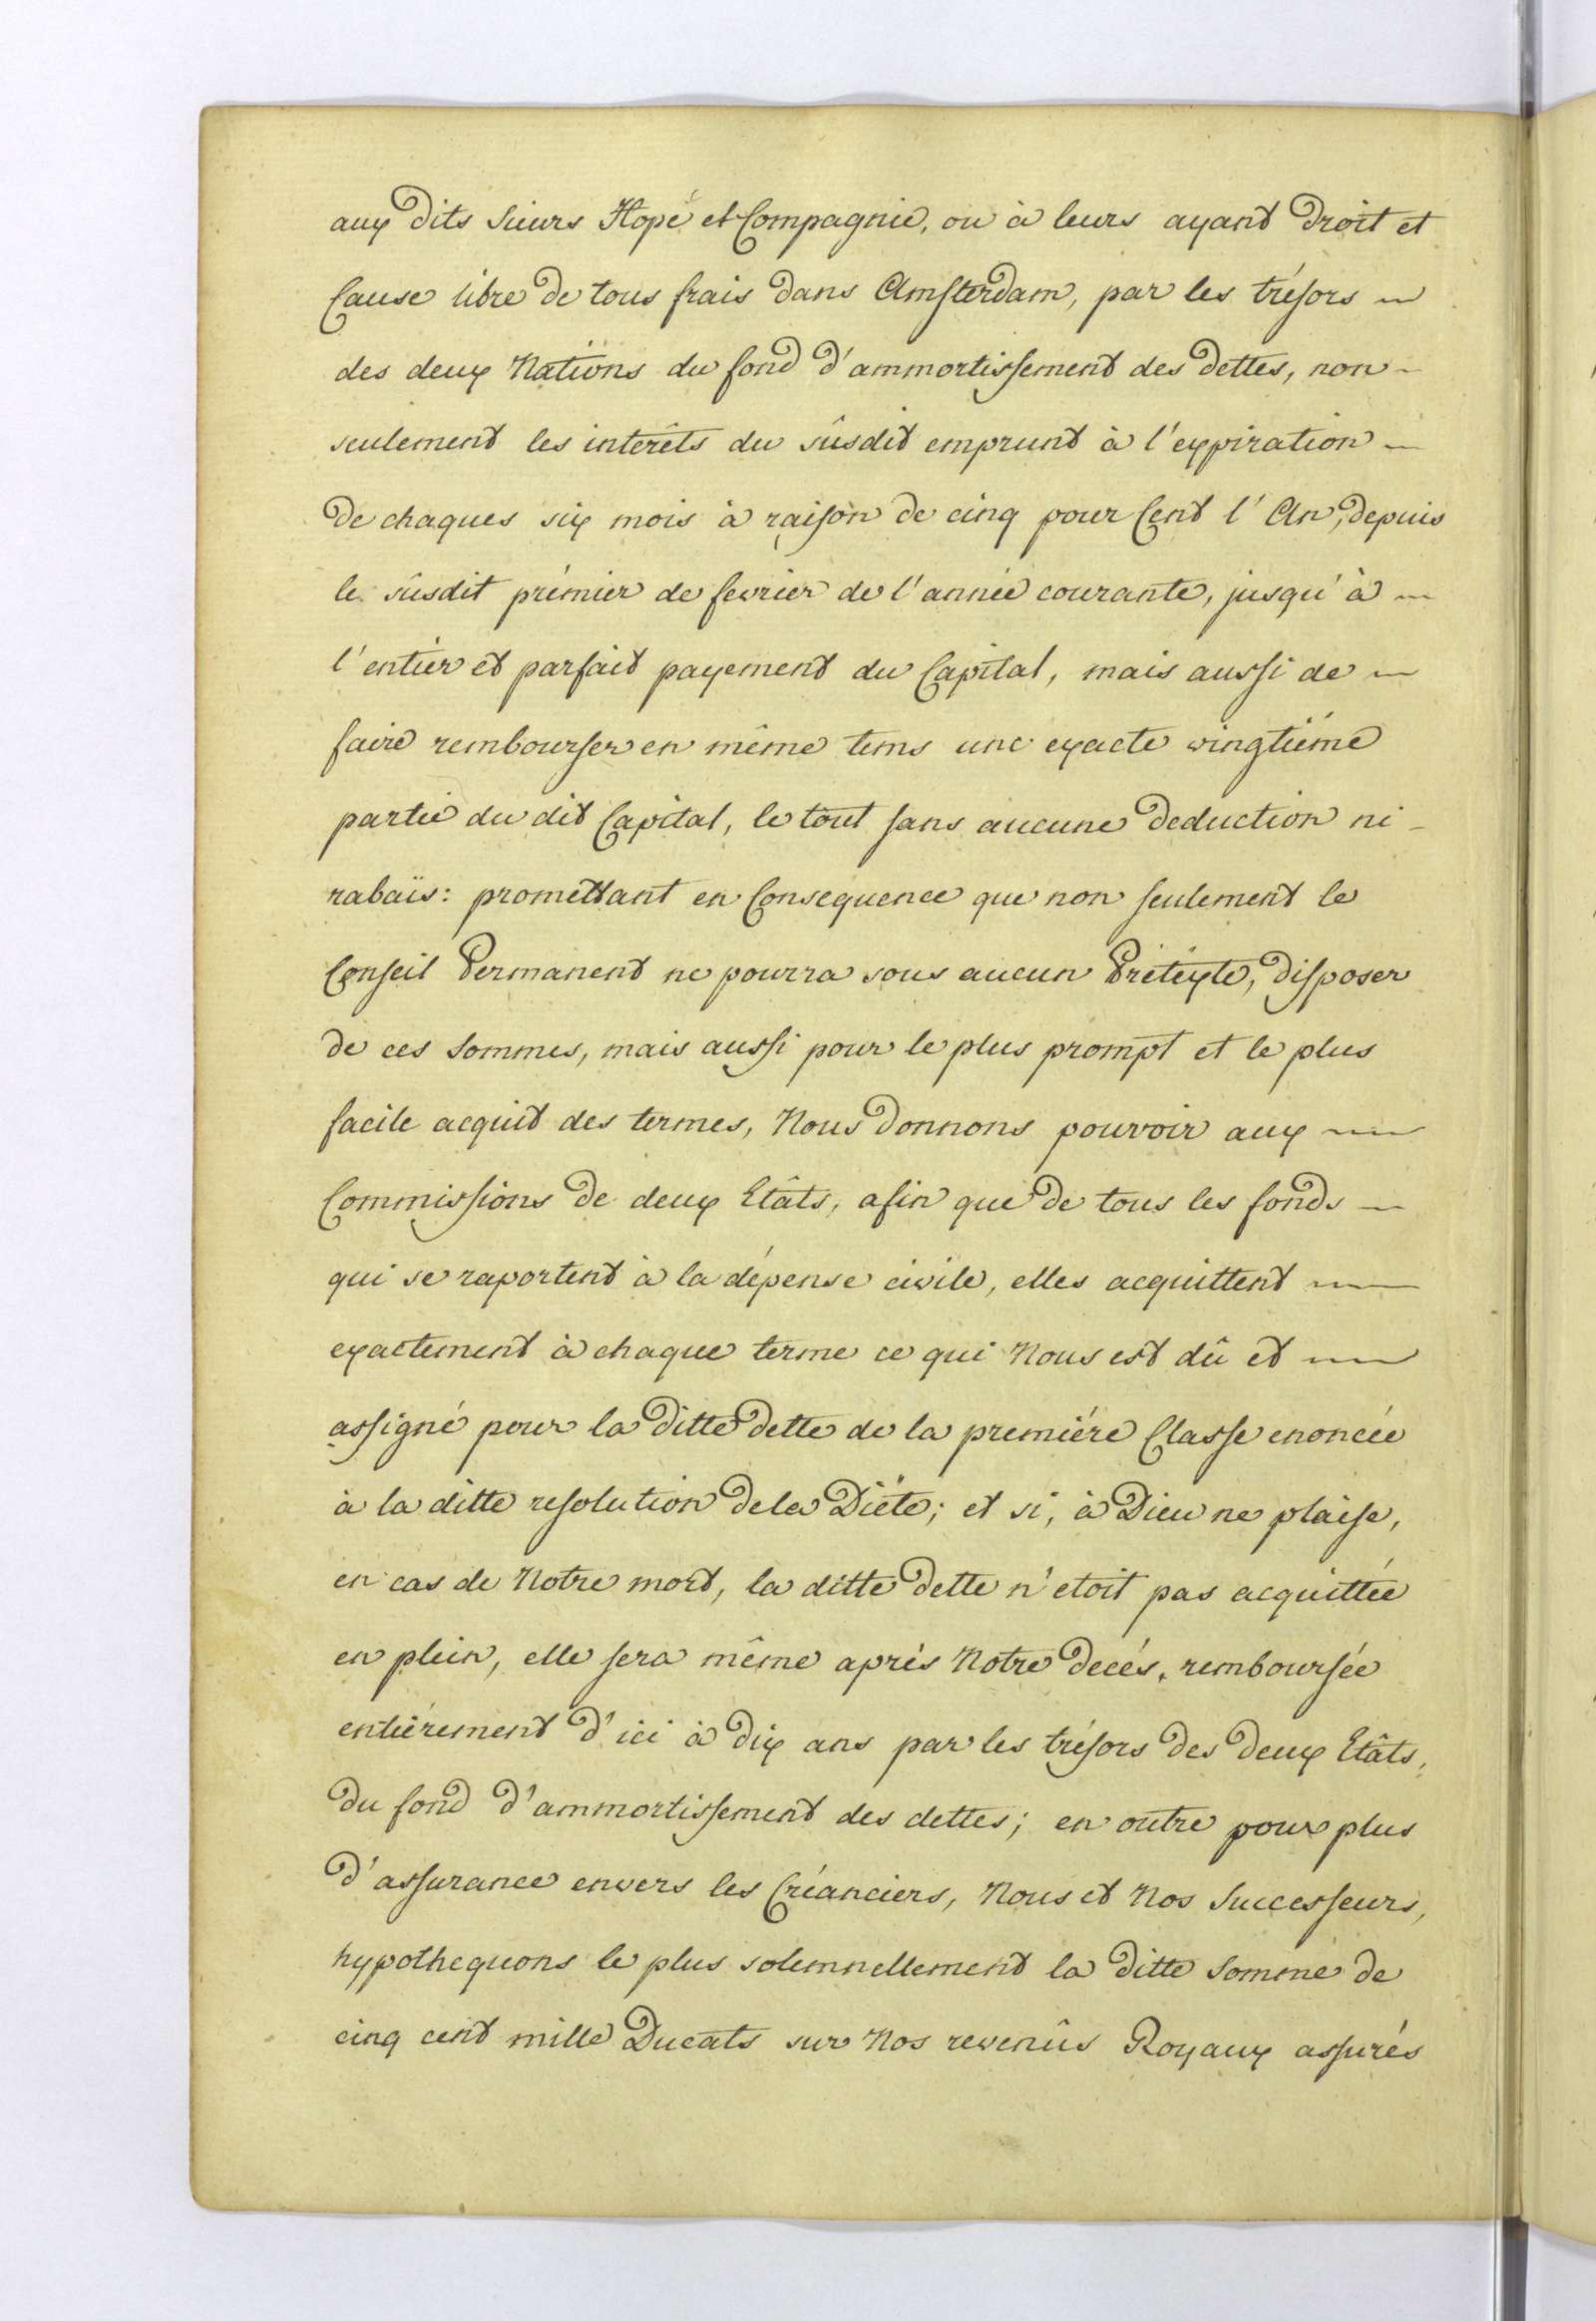 aux dits Sieurs Hopé et Compagnie, ou à leurs ayant droit et
Cause libre de tous frais dans Amsterdam, par les trésors
des deux Nations du fond d'ammortissement des dettes, non-
seulement les interêts du sûsdit emprunt à l'expiration
de chaques six mois à raison de cinq pour Cent l'An, depuis
le sûsdit prémier de fevrier de l'année courante, jusqu'à
l'entier et parfait payement du Capital, mais aussi de
faire rembourser en même tems une exacte vingtiéme
partie du dit Capital, le tout sans aucune deduction ni
rabaïs: promettant en Consequence que non seulement le
Conseil Permanent ne pourra sous aucun Prétéxte, disposer
de ces Sommes, mais aussi pour le plus prompt et le plus
facile acquit des termes, Nous donnons pouvoir aux
Commissions de deux Etâts, afin que de tous les fonds
qui se raportent à la dépense civile, elles acquittent
exactement à chaque terme ce qui Nous est dû et
assigné pour la ditte dette de la premiére Classe enoncée
à la ditte resolution de la Diéte; et si, à Dieu ne plaise,
en cas de Notre mort, la ditte dette n'etoit pas acquittée
en plein, elle sera même aprés Notre decés, remboursée
entiérement d'ici à dix ans par les trésors des deux Etâts,
du fond d'ammortissement des dettes; en outre pour plus
d'assurance envers les Créanciers, Nous et Nos Successeurs,
hypothequons le plus solemnellement la ditte Somme de
cinq cent mille Ducats sur Nos revenûs Royaux assurés